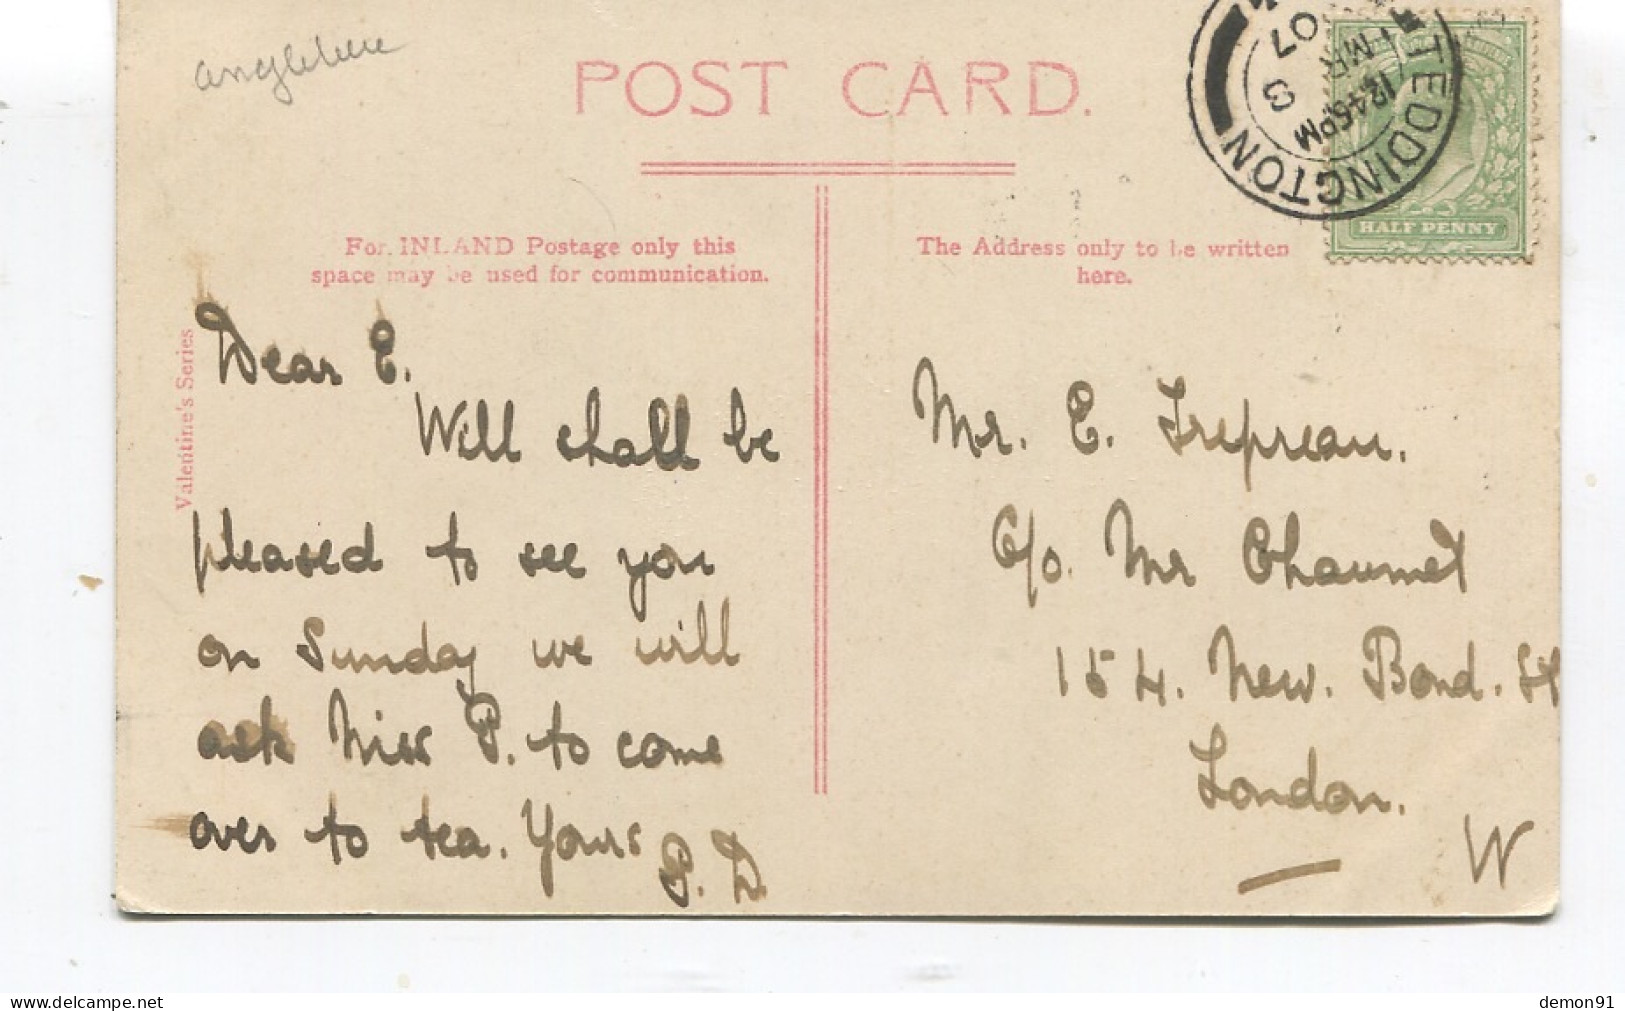 angleterre
POST CARD.
TEDDINGTON
S
12.45PM
MR
07
HALF PENNY
For INLAND Postage only this
space may be used for communication.
The Address only to be written
here.
Valentine's Series
Dear E.
Will shall be
pleased to see you
on Sunday we will
ask Miss P. to come
over to tea. Yours
P. D.
Mr. E. Trepreau.
C/o. Mr Chaumet
154. New. Bond. St
London.
W
delcampe.net
demon91